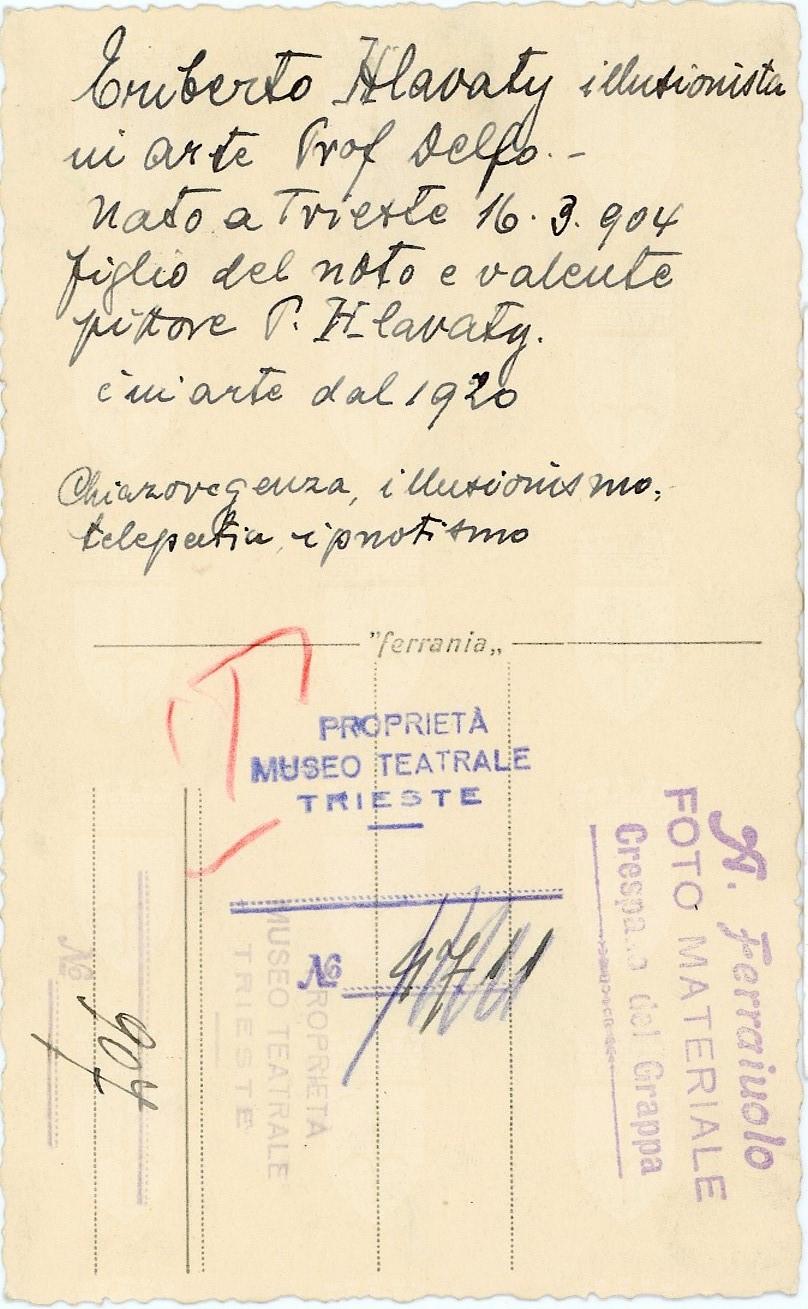 Eriberto Hlavaty illusionista
in arte Prof Delfo. -
nato a Trieste 16. 3. 904
figlio del noto e valente
pittore P. Hlavaty.
è in arte dal 1920
Chiaroveggenza, illusionismo,
telepatia, ipnotismo
"ferrania„
PROPRIETÀ
MUSEO TEATRALE
TRIESTE
No
PROPRIETÀ
MUSEO TEATRALE
TRIESTE
No
907
Ferraiuolo
FOTO MATERIALE
Crespano del Grappa